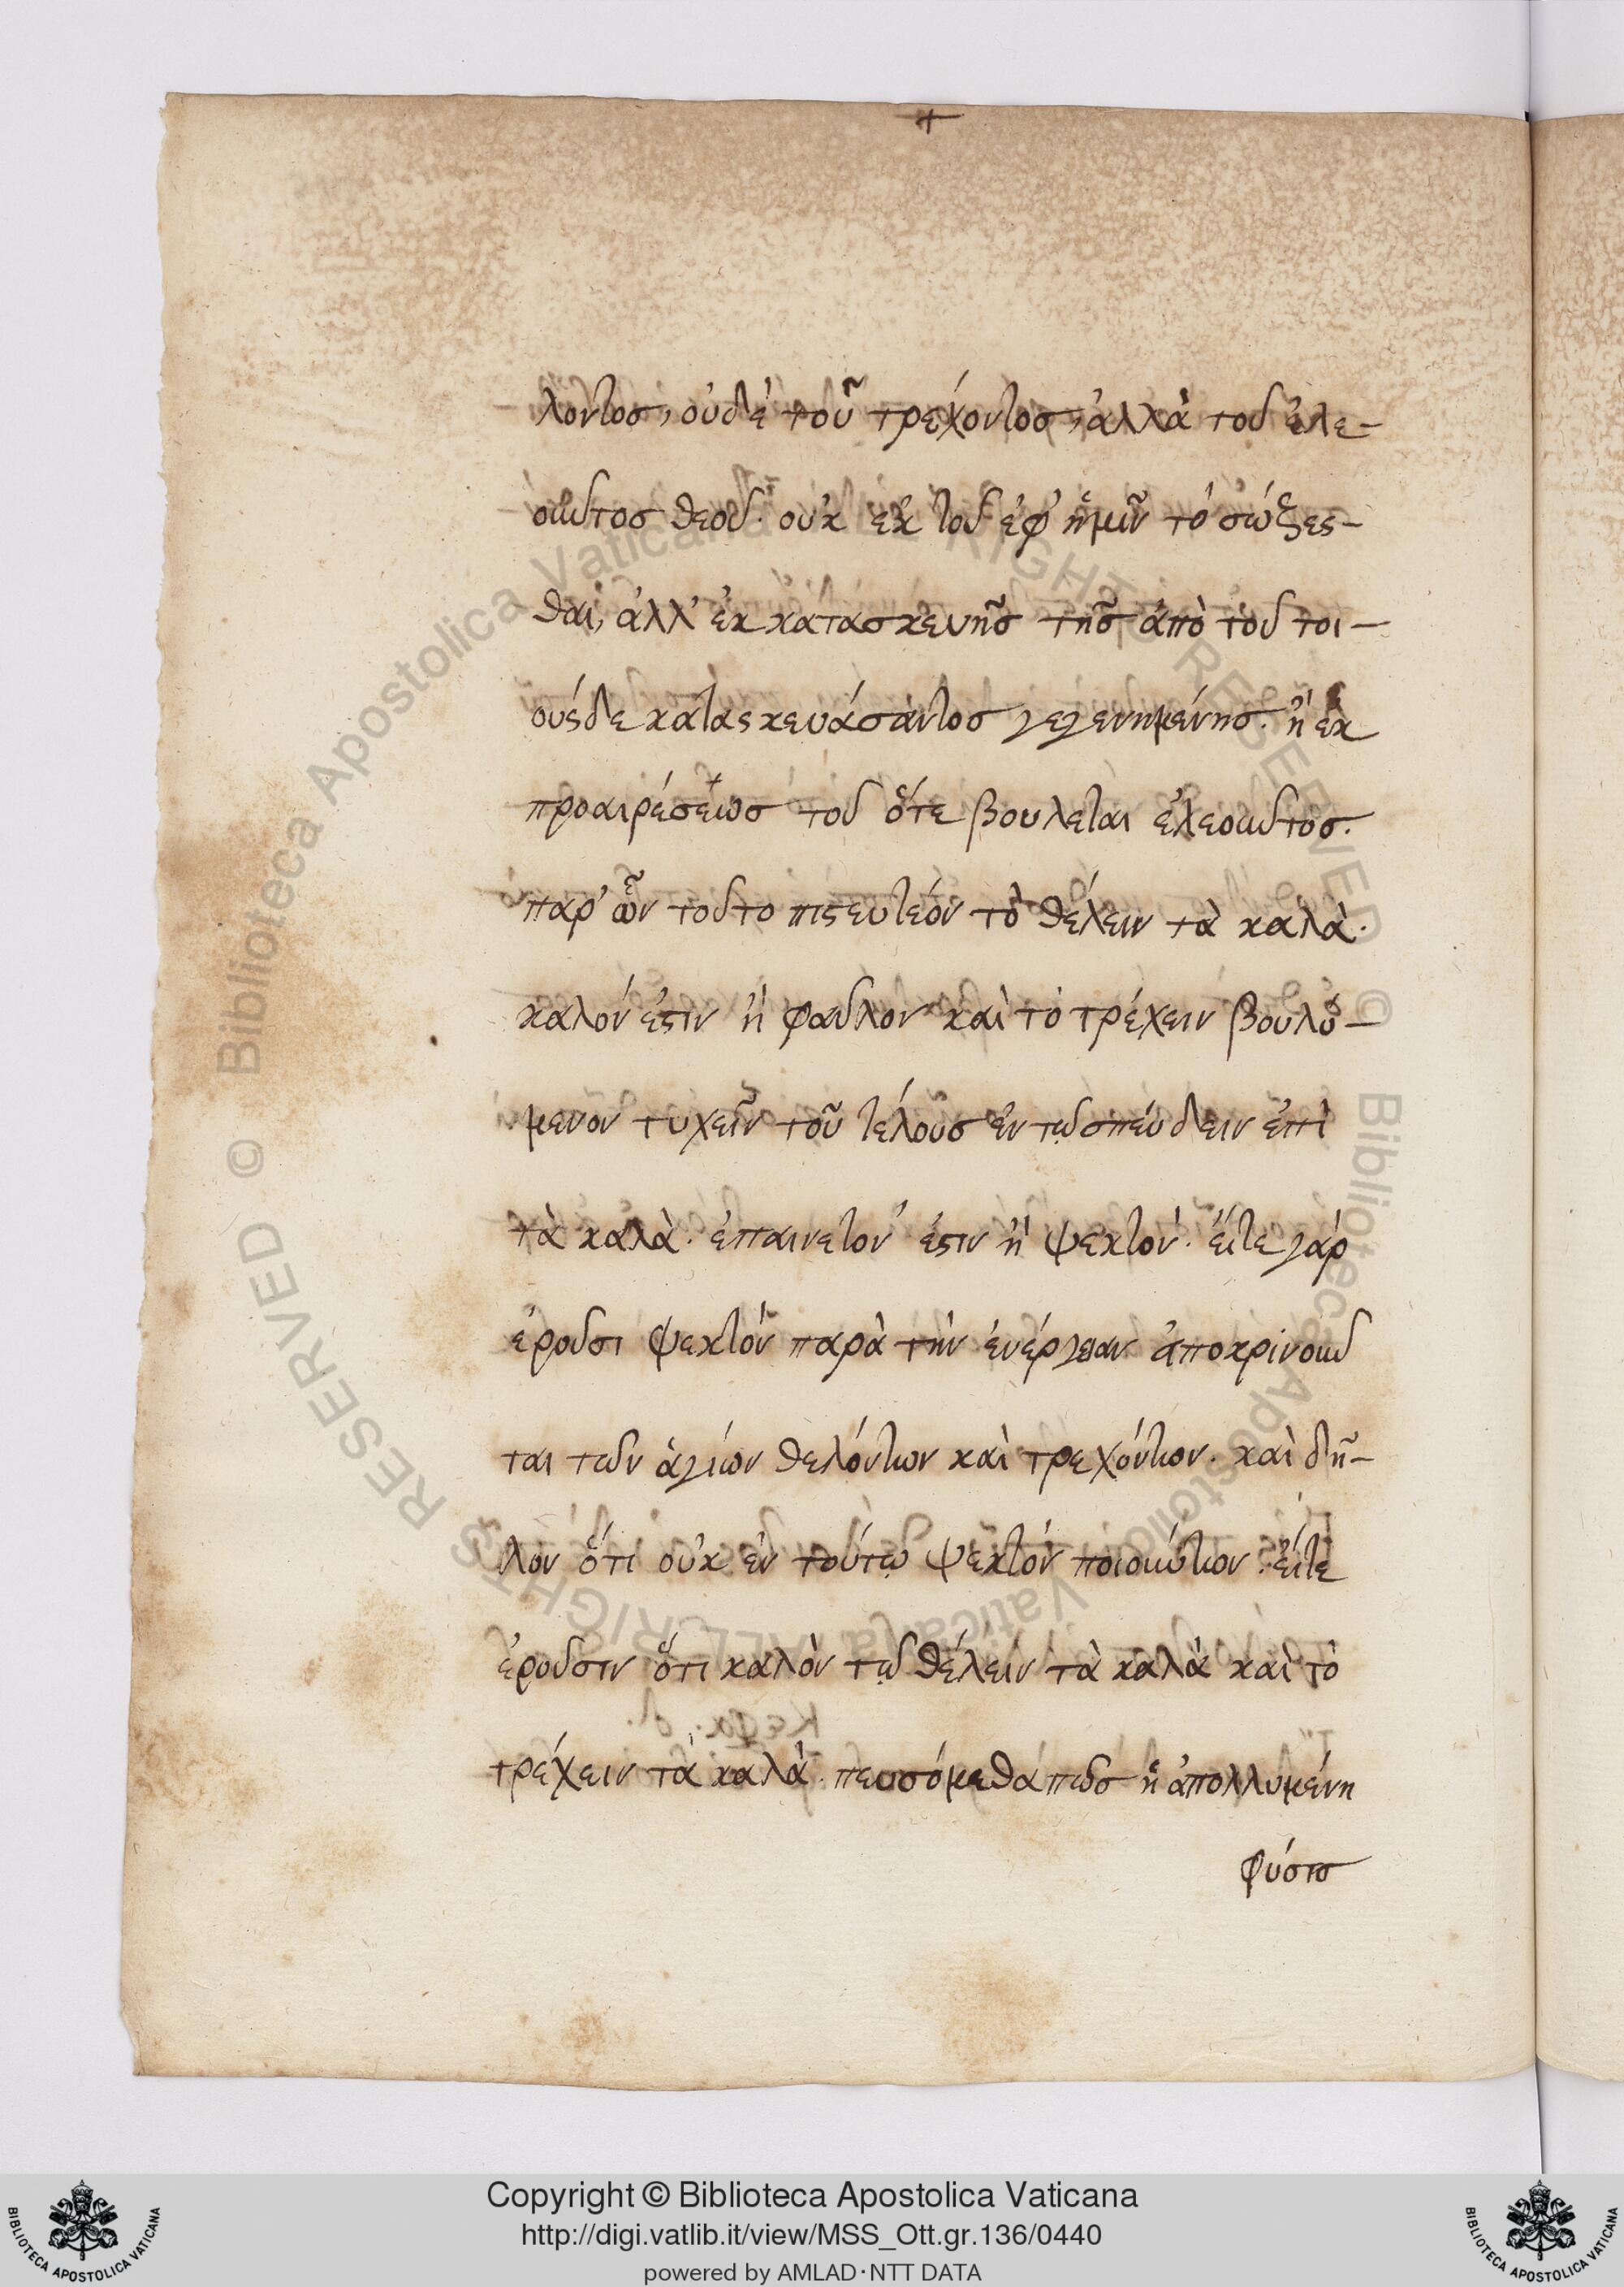 +
λοντος, οὐδὲ τοῦ τρέχοντος, ἀλλὰ τοῦ ἐλε-
οῦντος θεοῦ. οὐκ ἐκ τοῦ ἐφ' ἡμῖν τὸ σώζεσ-
θαι, ἀλλ' ἐκ κατασκευῆς τῆς ἀπὸ τοῦ τοι-
ούσδε κατασκευάσαντος γεγενημένης. ἢ ἐκ
προαιρέσεως τοῦ ὅτε βούλεται ἐλεοῦντος.
παρ' ὧν τοῦτο πιστευτέον τὸ θέλειν τὰ καλὰ.
καλόν ἐστιν ἢ φαῦλον καὶ τὸ τρέχειν βουλό-
μενον τυχεῖν τοῦ τέλους ἐν τῷ σπεύδειν ἐπὶ
τὰ καλὰ. ἐπαινετόν ἐστιν ἢ ψεκτόν. εἴτε γάρ
ἐροῦσι ψεκτόν παρὰ τὴν ἐνέργειαν ἀποκρινοῦν
ται τῶν ἁγίων θελόντων καὶ τρεχόντων. καὶ δῆ-
λον ὅτι οὐκ ἐν τούτῳ ψεκτόν ποιούντων. εἴτε
ἐροῦσιν ὅτι καλὸν τῷ θέλειν τὰ καλὰ καὶ τὸ
τρέχειν τὰ καλά. πευσόμεθα πῶς ἡ ἀπολλυμένη
φύσις
Copyright © Biblioteca Apostolica Vaticana
http://digi.vatlib.it/view/MSS_Ott.gr.136/0440
powered by AMLAD·NTT DATA
BIBLIOTECA APOSTOLICA VATICANA
BIBLIOTECA APOSTOLICA VATICANA
© Biblioteca Apostolica Vaticana ALL RIGHTS RESERVED © Biblioteca Apostolica Vaticana ALL RIGHTS RESERVED